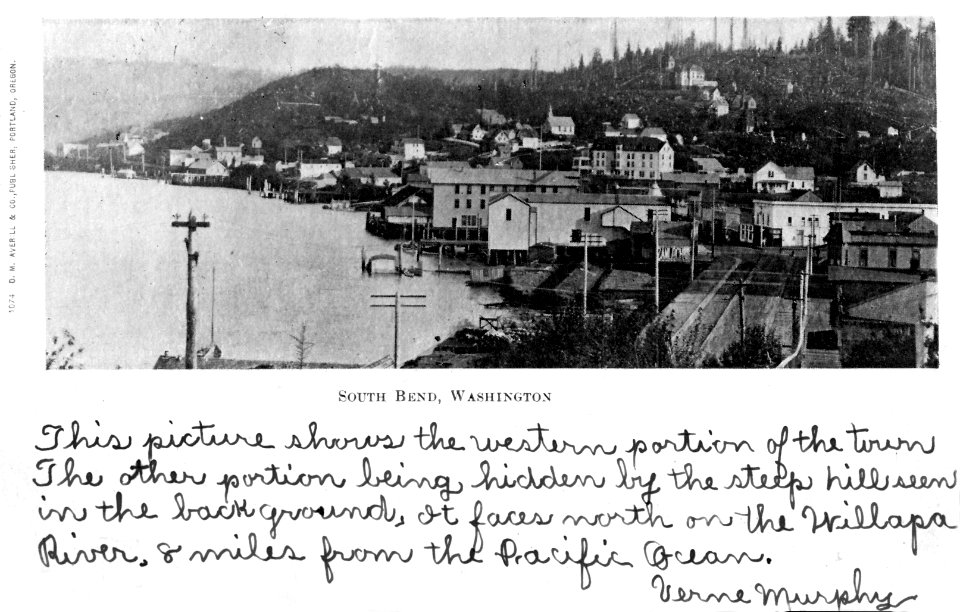 1074 D. M. AVERILL & CO., PUBLISHER, PORTLAND, OREGON.
SOUTH BEND, WASHINGTON
This picture shows the western portion of the town
The other portion being hidden by the steep hill seen
in the background, It faces north on the Willapa
River, 8 miles from the Pacific Ocean.
Verne Murphy